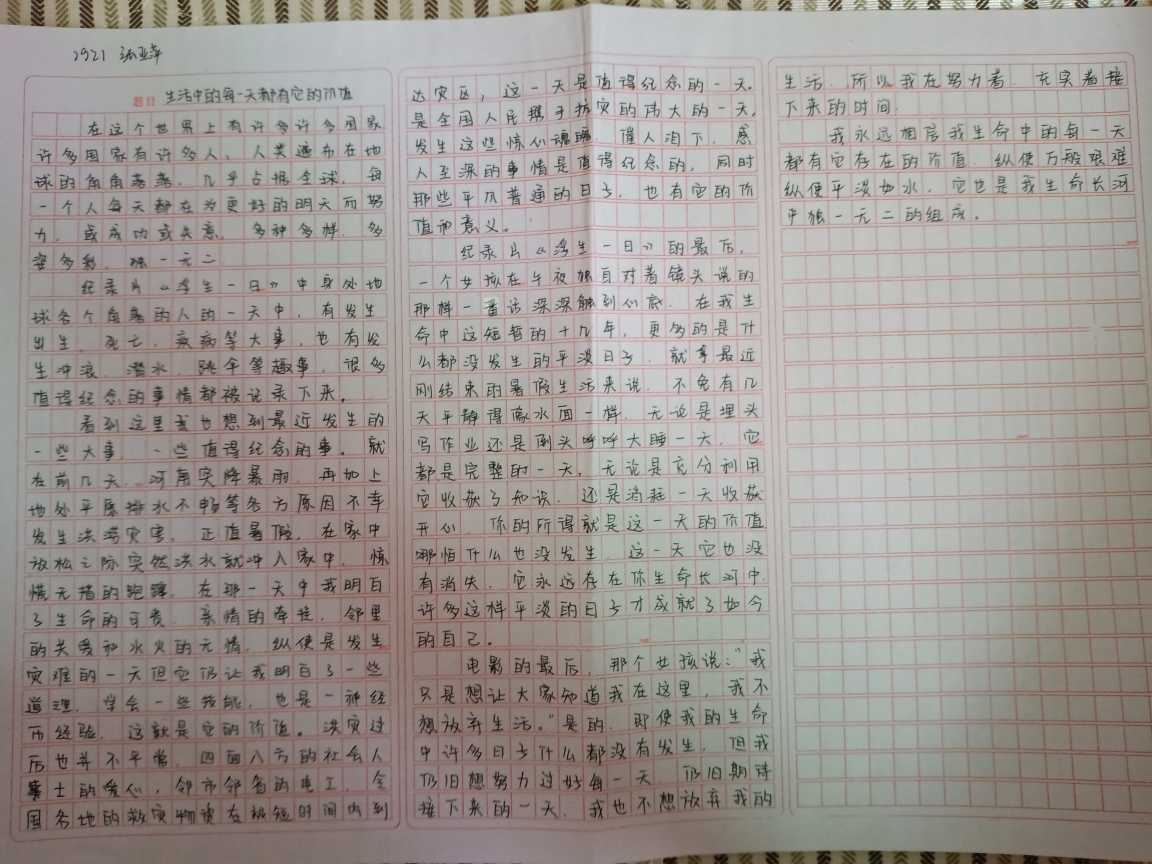 2921 张亚萍
题目 生活中的每一天都有它的价值
在这个世界上有许多许多国家
许多国家有许多人、人类遍布在地
球的角角落落,几乎占据全球,每
一个人每天都在为更好的明天而努
力,或成功或失意,多种多样,多
姿多彩,独一无二
纪录片《浮生一日》中身处地
球各个角落的人的一天中,有发生
出生,死亡,疾病等大事,也有发
生冲浪,潜水,跳伞等趣事,很多
值得纪念的事情都被记录下来。
看到这里我也想到最近发生的
一些大事,一些值得纪念的事。就
在前几天,河南突降暴雨,再加上
地处平原排水不畅等各方原因不幸
发生洪涝灾害,正值暑假,在家中
放松之际突然洪水就冲入家中,惊
慌无措的跑,在那一天中我明白
了生命的可贵,亲情的牵挂,邻里
的关爱和水火的无情,纵使是发生
灾难的一天但它仍让我明白了一些
道理,学会一些技能,也是一种经
历经验,这就是它的价值。洪灾过
后也并不平常,四面八方的社会人
士的爱心,邻市邻省的电工,全
国各地的救灾物资在极短时间内到
达灾区,这一天是值得纪念的一天。
是全国人民携手抗灾的伟大的一天。
发生这些惊心动魄,催人泪下,感
人至深的事情是值得纪念的,同时
那些平凡普通的日子,也有它的价
值和意义。
纪录片《浮生一日》的最后,
一个女孩在午夜独自对着镜头说的
那样一番话深深触到心底,在我生
命中这短暂的十几年,更多的是什
么都没发生的平淡日子,就拿最近
刚结束的暑假生活来说,不免有几
天平静得像水面一样,无论是埋头
写作业还是倒头呼呼大睡一天,它
都是完整的一天。无论是充分利用
它收获了知识,还是消耗一天收获
开心,你的所得就是这一天的价值
哪怕什么也没发生,这一天它也没
有消失,它永远存在你生命长河中,
许多这样平淡的日子才成就了如今
的自己。
电影的最后,那个女孩说:“我
只是想让大家知道我在这里,我不
想放弃生活。”是的,即使我的生命
中许多日子什么都没有发生,但我
仍旧想努力过好每一天,仍旧期待
接下来的一天,我也不想放弃我的
生活,所以我在努力着,充实着接
下来的时间,
我永远相信我生命中的每一天
都有它存在的价值,纵使万般艰难
纵使平淡如水,它也是我生命长河
中独一无二的组成。